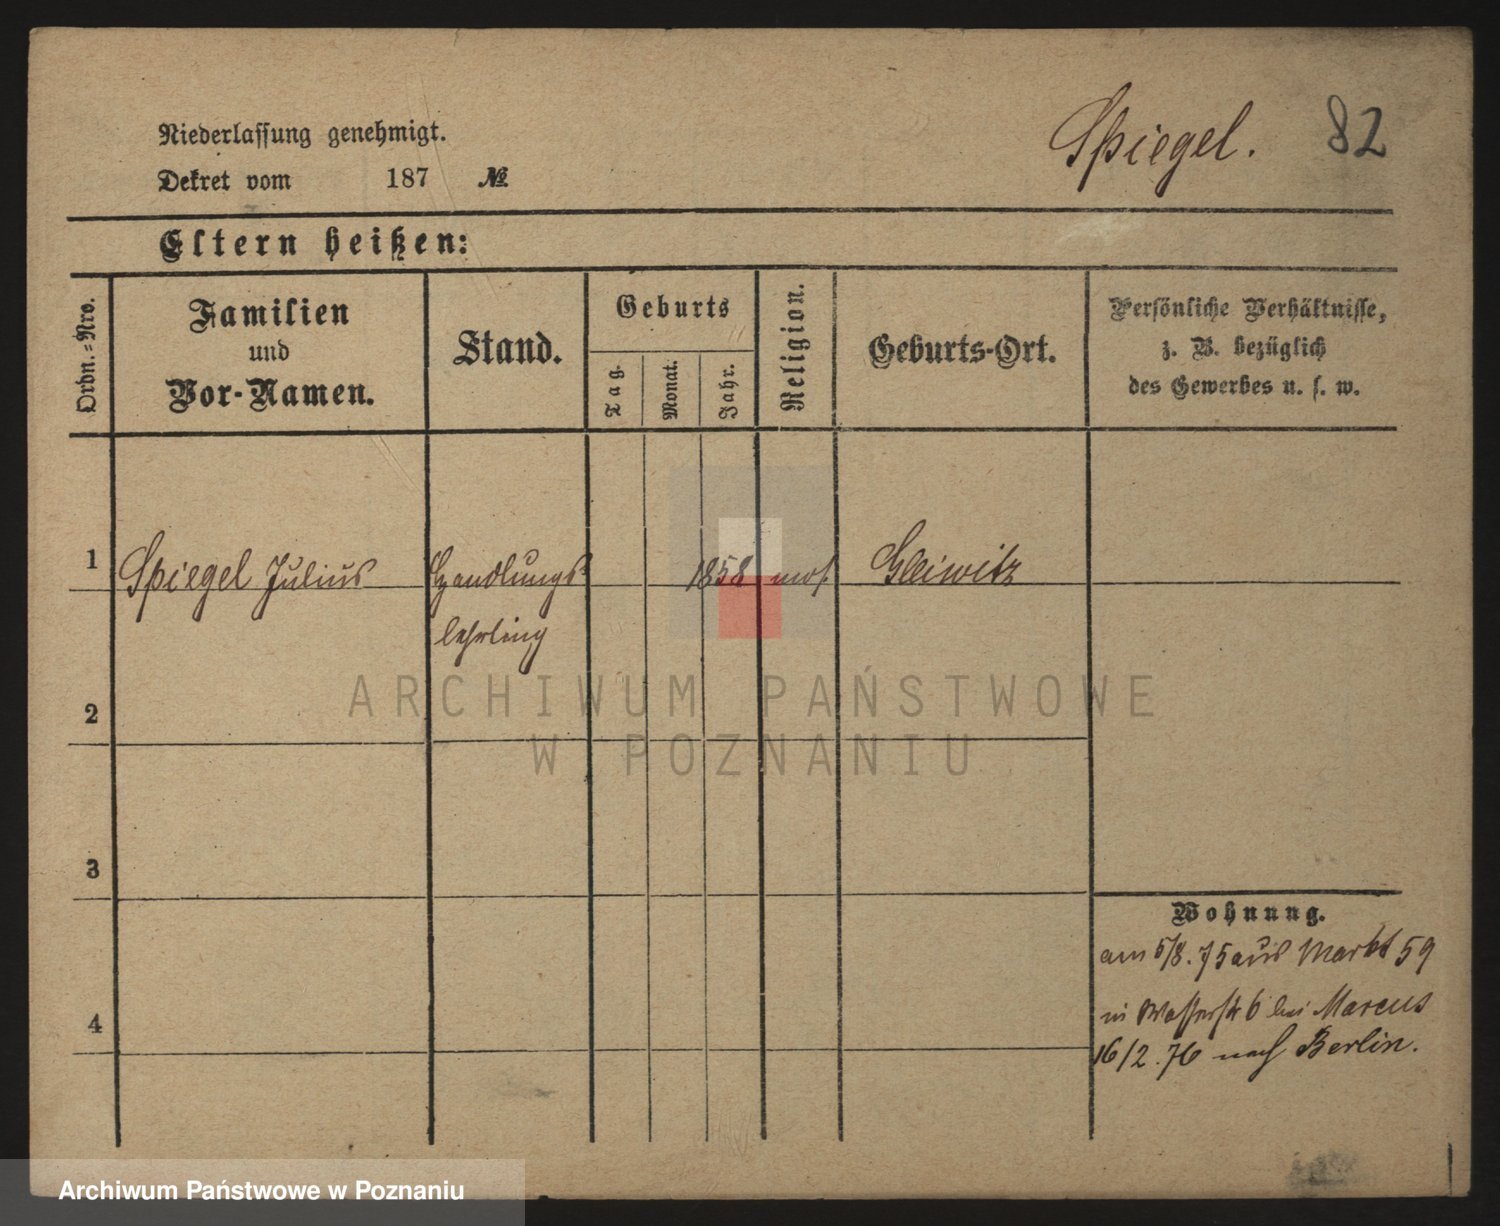 Niederlassung genehmigt.
Dekret vom 187 №
Spiegel. 82
Eltern heißen:
Ordn.-Nro.
Familien
und
Vor-Namen.
Stand.
Geburts
Tag.
Monat.
Jahr.
Religion.
Geburts-Ort.
Persönliche Verhältnisse,
z. B. bezüglich
des Gewerbes u. s. w.
1 Spiegel Julius Handlungs 1858 mos. Gleiwitz
lehrling
2
3
4
Wohnung.
am 5/8. 75 aus Markt 59
in Wasserstr 6 bei Marcus
16/2. 76 nach Berlin.
ARCHIWUM PAŃSTWOWE
W POZNANIU
Archiwum Państwowe w Poznaniu